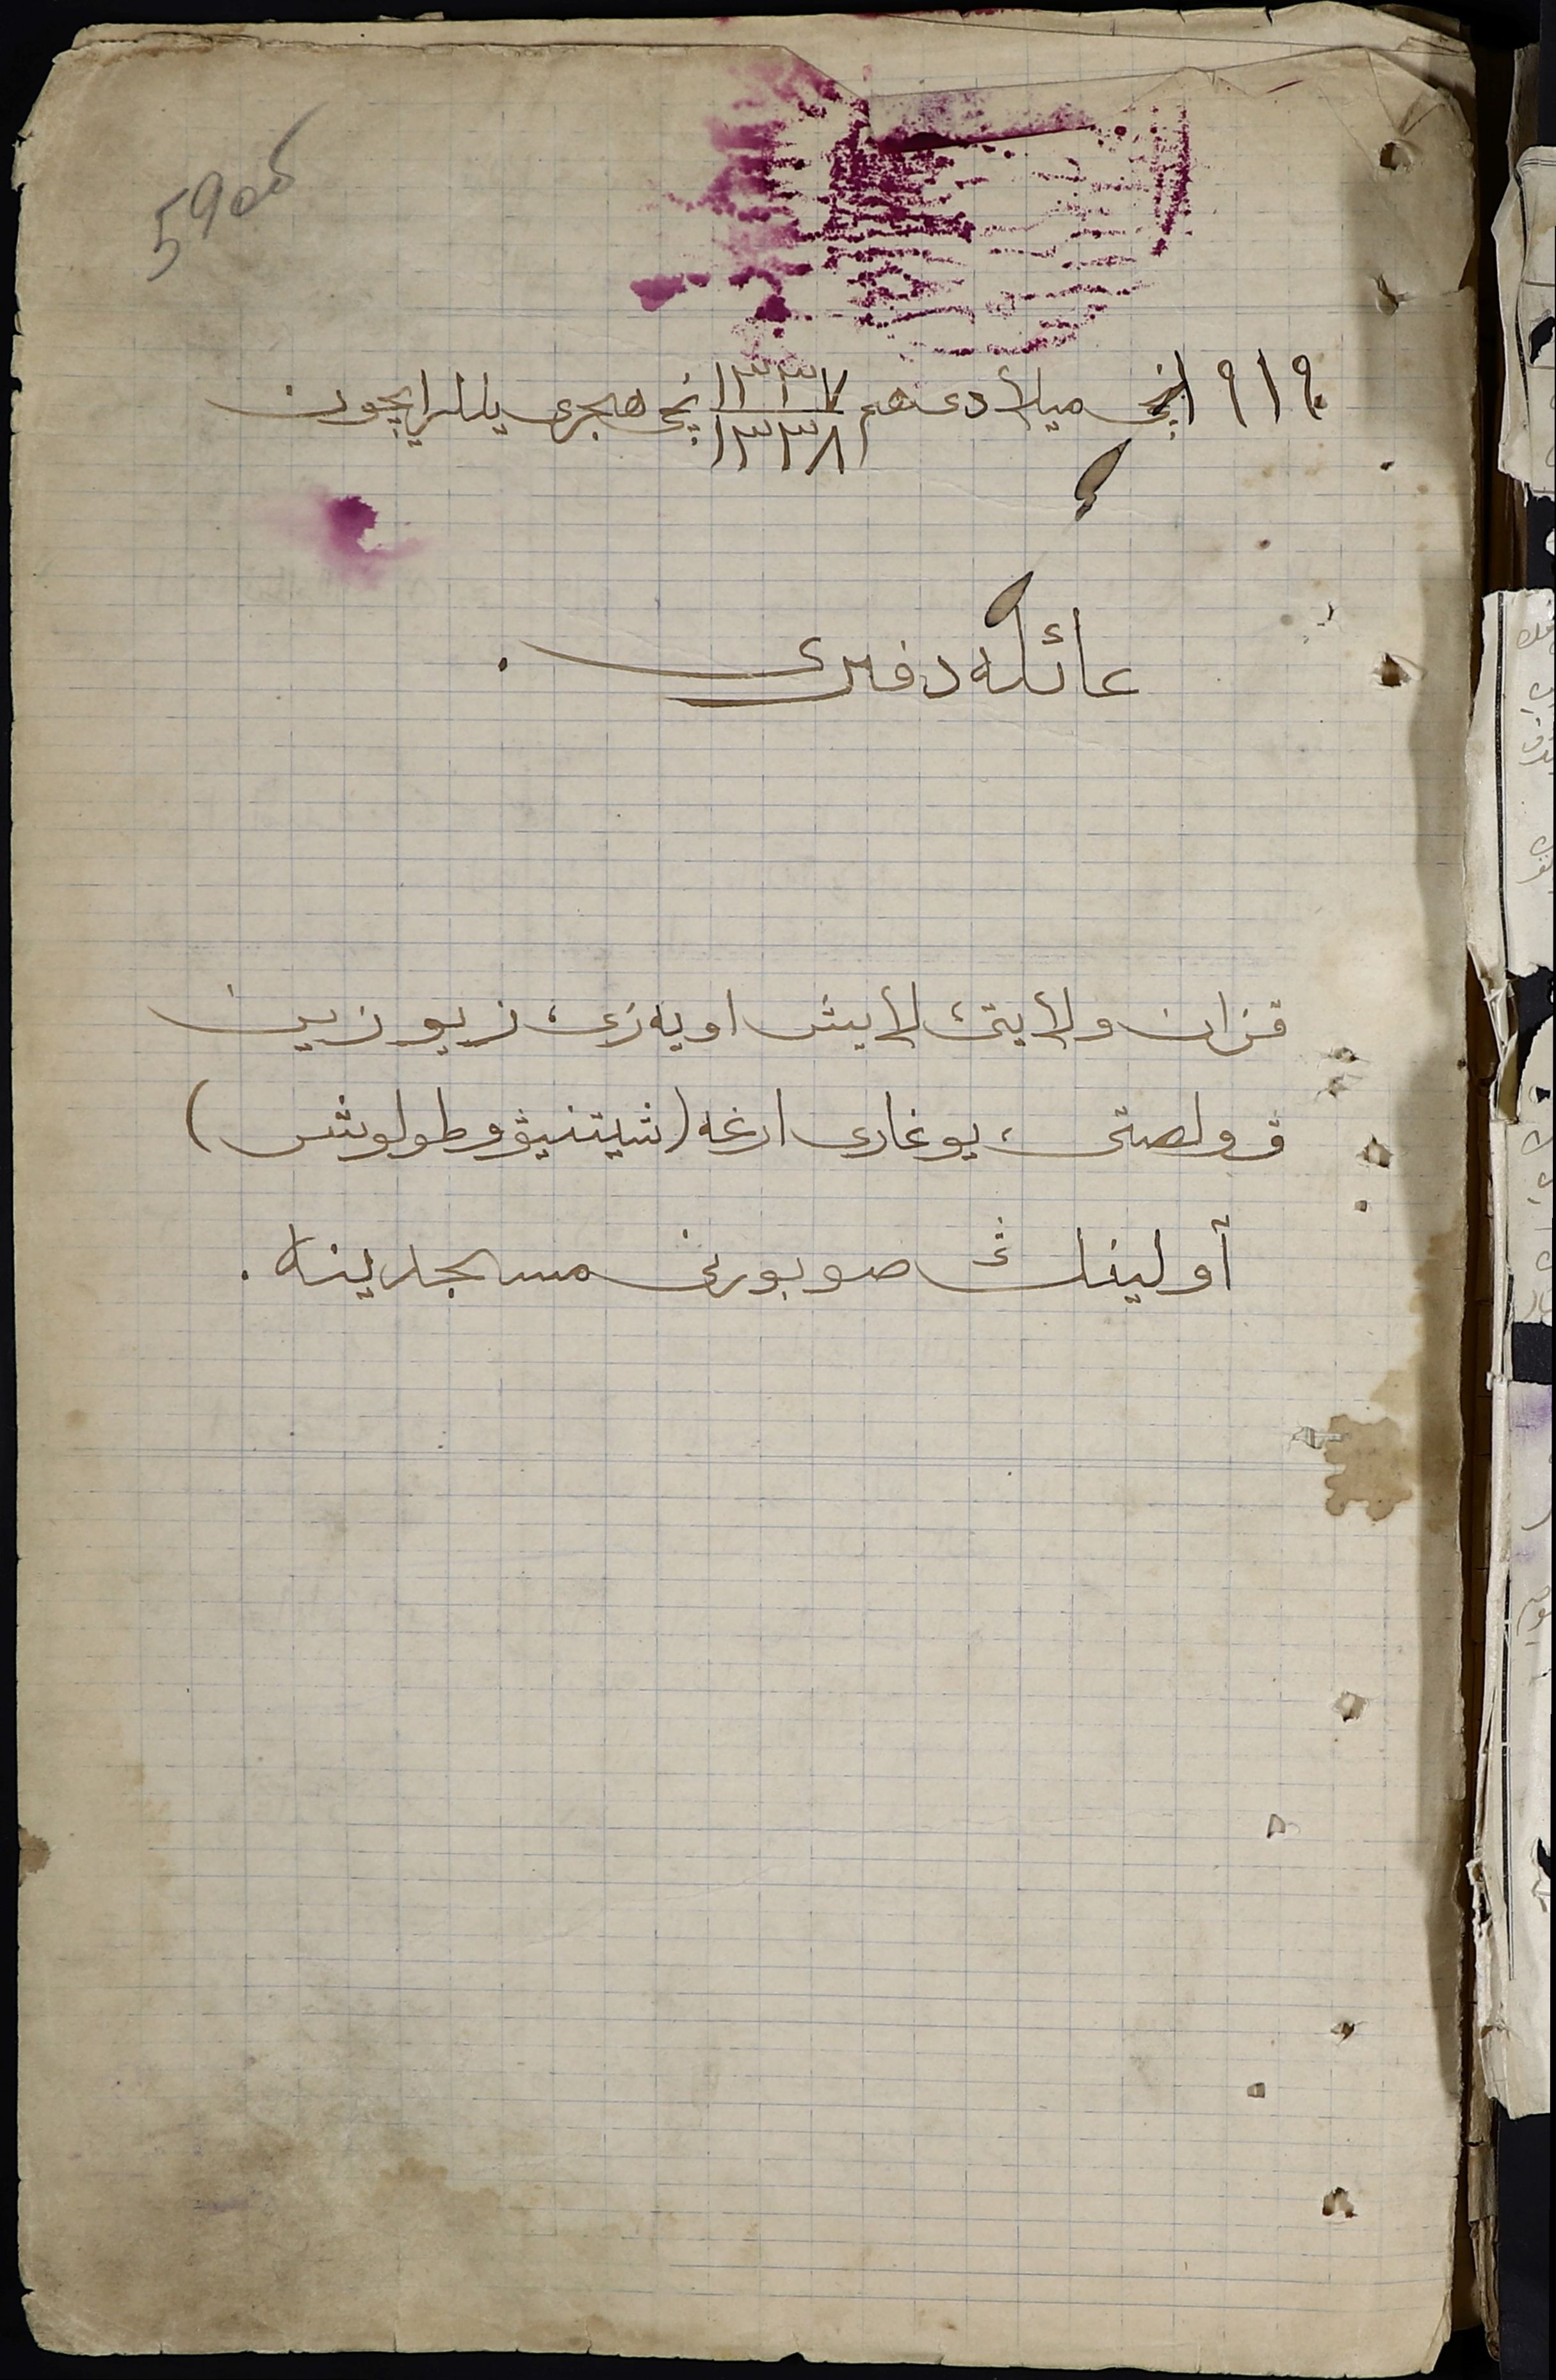 59 об
۱۹۱۹ انچی میلادی هم ۱۳۳۷/۱۳۳۸ نچی هجری یللرایچون
عائله دفتری.
قزان ولایتی لایش اویه زی، زیوزین
وولصتی، یوغاری ارغه (شیتنیقوطولوش)
آولینڭ صوبورنی مسجدینه.